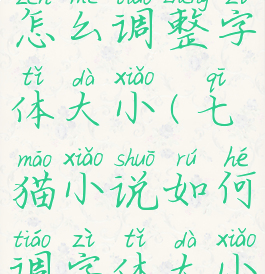 zěn me tiáo zhěng zì
怎么调整字
tǐ dà xiǎo qī
体大小(七
māo xiǎo shuō rú hé
猫小说如何
tiáo zì tǐ dà xiǎo
调字体大小